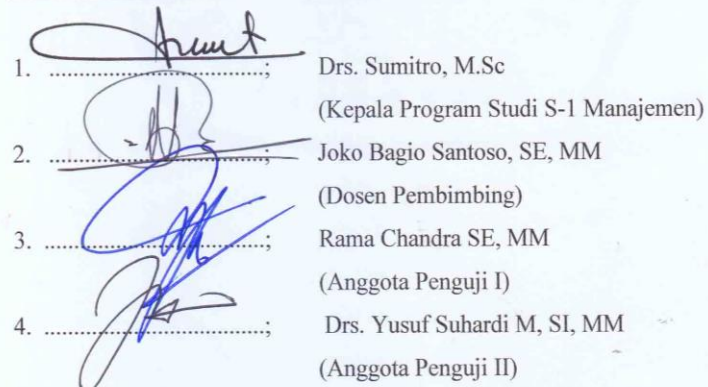 1. ....................................; Drs. Sumitro, M.Sc
(Kepala Program Studi S-1 Manajemen)
2. ....................................; Joko Bagio Santoso, SE, MM
(Dosen Pembimbing)
3. ....................................; Rama Chandra SE, MM
(Anggota Penguji I)
4. ....................................; Drs. Yusuf Suhardi M, SI, MM
(Anggota Penguji II)